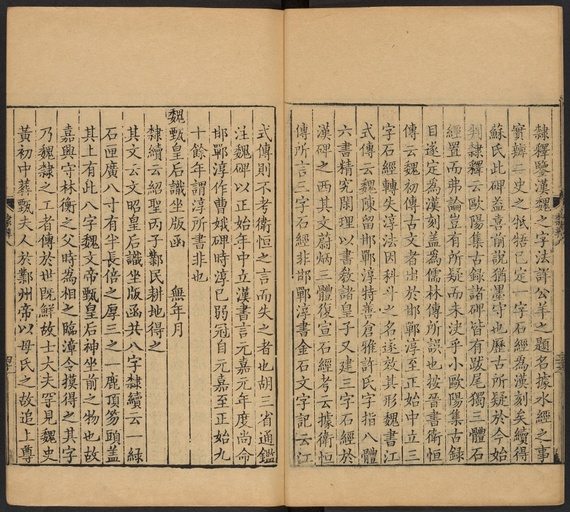 隸釋鑒漢魏之字法詳公羊之題名據水經之事
實辨二史之牴牾已定一字石經為漢刻矣續得
蘇氏此碑益喜前說猶墨守也歷古所疑於今始
判隸釋云歐陽集古錄諸碑皆有跋尾獨三體石
經置而弗論豈有所疑而未決乎小歐陽集古錄
目遂定為漢刻蓋為儒林傳所誤也按晉書衛恒
傳云魏初傳古文者出於邯鄲淳至正始中立三
字石經轉失淳法因科斗之名遂效其形魏書江
式傳云魏陳留邯鄲淳特善倉雅許氏字指八體
六書精究閑理以書教諸皇子又建三字石經於
漢碑之西其文蔚炳三體復宣石經考云據衛恒
傳所言三字石經非邯鄲淳書金石文字記云江
式傳則不考衛恒之言而失之者也胡三省通鑑
注魏碑以正始年中立漢書言元嘉元年度尚命
邯鄲淳作曹娥碑時淳已弱冠自元嘉至正始九
十餘年謂淳所書非也
魏甄皇后識坐版函 無年月
隸續云紹聖丙子鄴民耕地得之
其文云文昭皇后識坐版函共八字隸續云一綠
石匣廣八寸有半長倍之厚三之一鹿頂笏頭蓋
其上有此八字魏文帝甄皇后神坐前之物也故
嘉興守林衡之父時為相之臨漳令摸得之其字
乃魏隸之工者傳於世既鮮故士大夫罕見魏史
黃初中葬甄夫人於鄴州帝以母氏之故追上尊